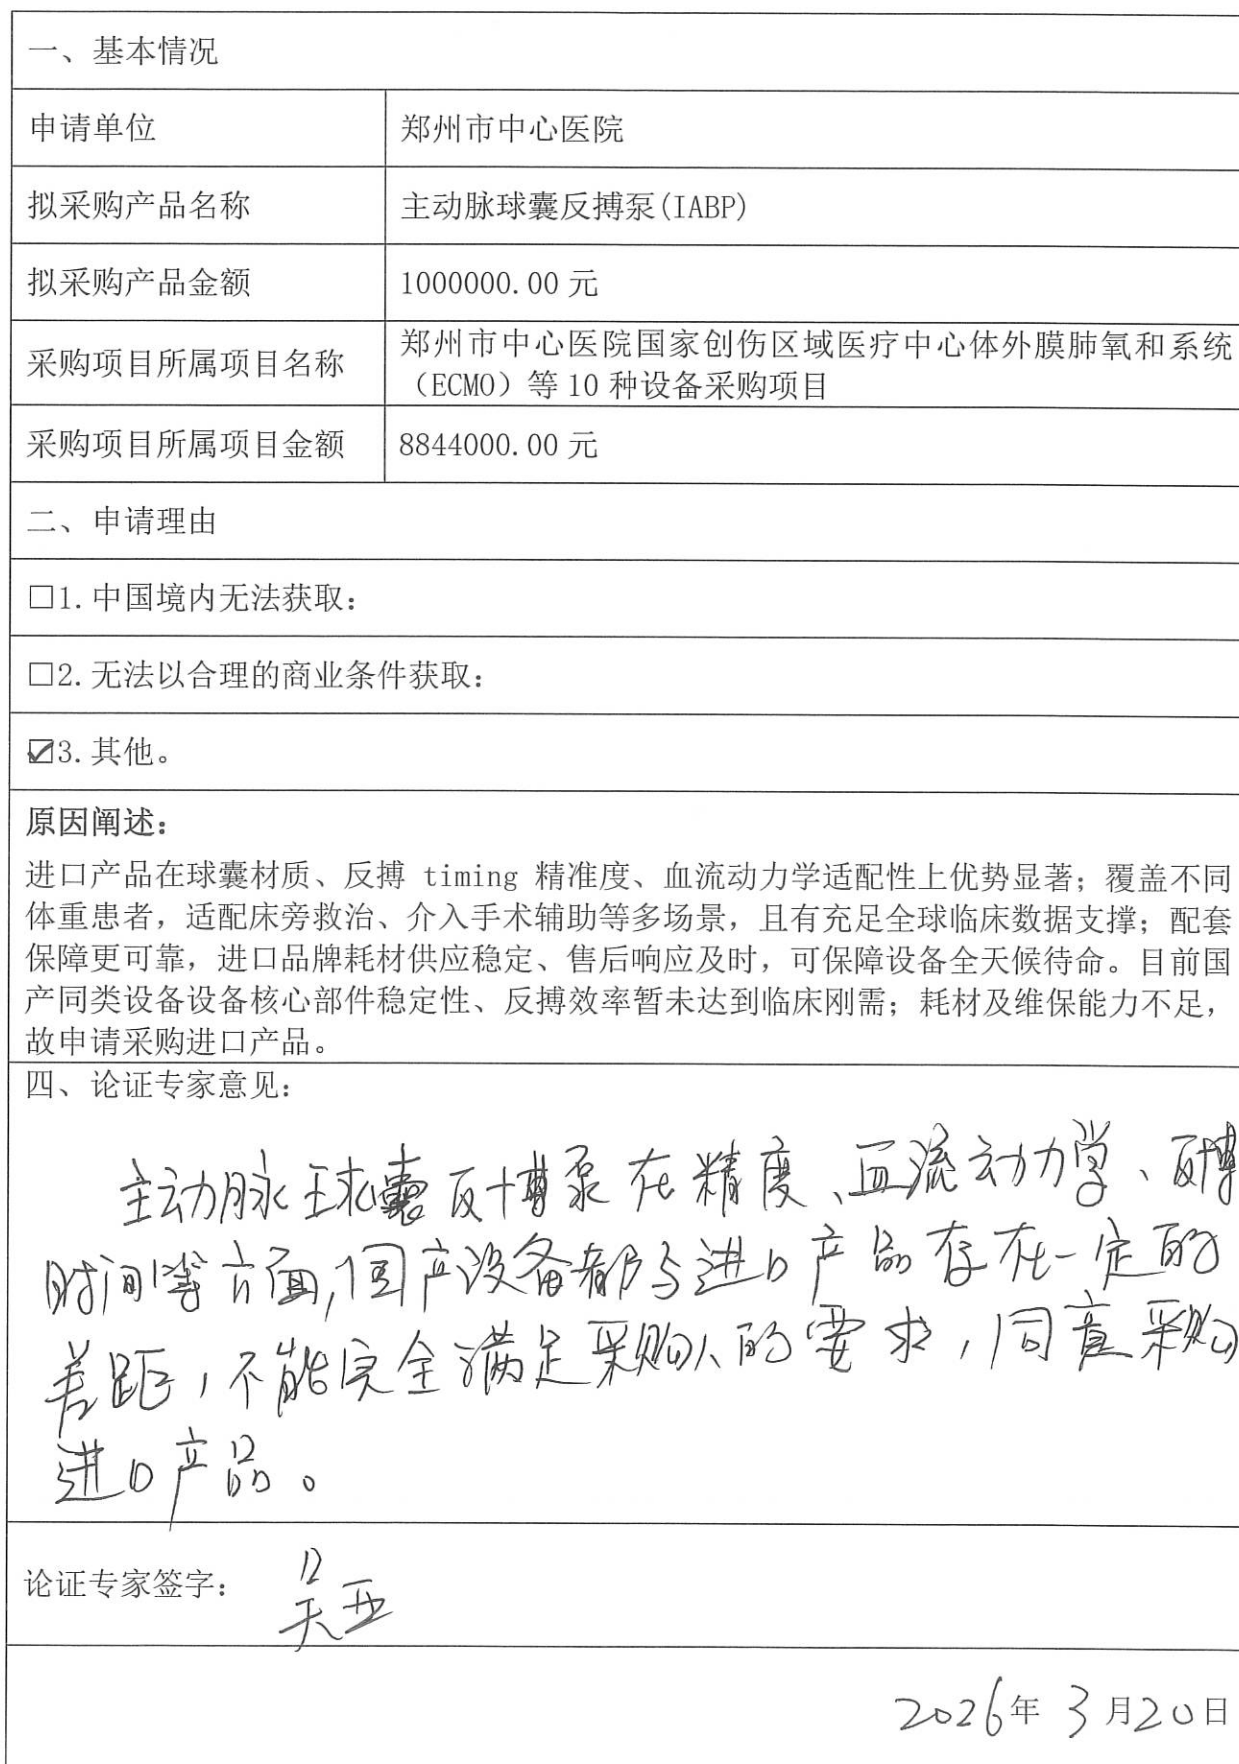 一、基本情况
申请单位
郑州市中心医院
拟采购产品名称
主动脉球囊反搏泵(IABP)
拟采购产品金额
1000000.00 元
采购项目所属项目名称
郑州市中心医院国家创伤区域医疗中心体外膜肺氧和系统
（ECMO）等 10 种设备采购项目
采购项目所属项目金额
8844000.00 元
二、申请理由
☐1.中国境内无法获取：
☐2.无法以合理的商业条件获取：
☑3.其他。
原因阐述：
进口产品在球囊材质、反搏 timing 精准度、血流动力学适配性上优势显著；覆盖不同
体重患者，适配床旁救治、介入手术辅助等多场景，且有充足全球临床数据支撑；配套
保障更可靠，进口品牌耗材供应稳定、售后响应及时，可保障设备全天候待命。目前国
产同类设备设备核心部件稳定性、反搏效率暂未达到临床刚需；耗材及维保能力不足，
故申请采购进口产品。
四、论证专家意见：
主动脉球囊反博泵在精度、血流动力学、反博
时间等方面,国产设备都与进口产品存在一定的
差距，不能完全满足采购人的要求，同意采购
进口产品。
论证专家签字：
吴亚
2026年 3 月20日